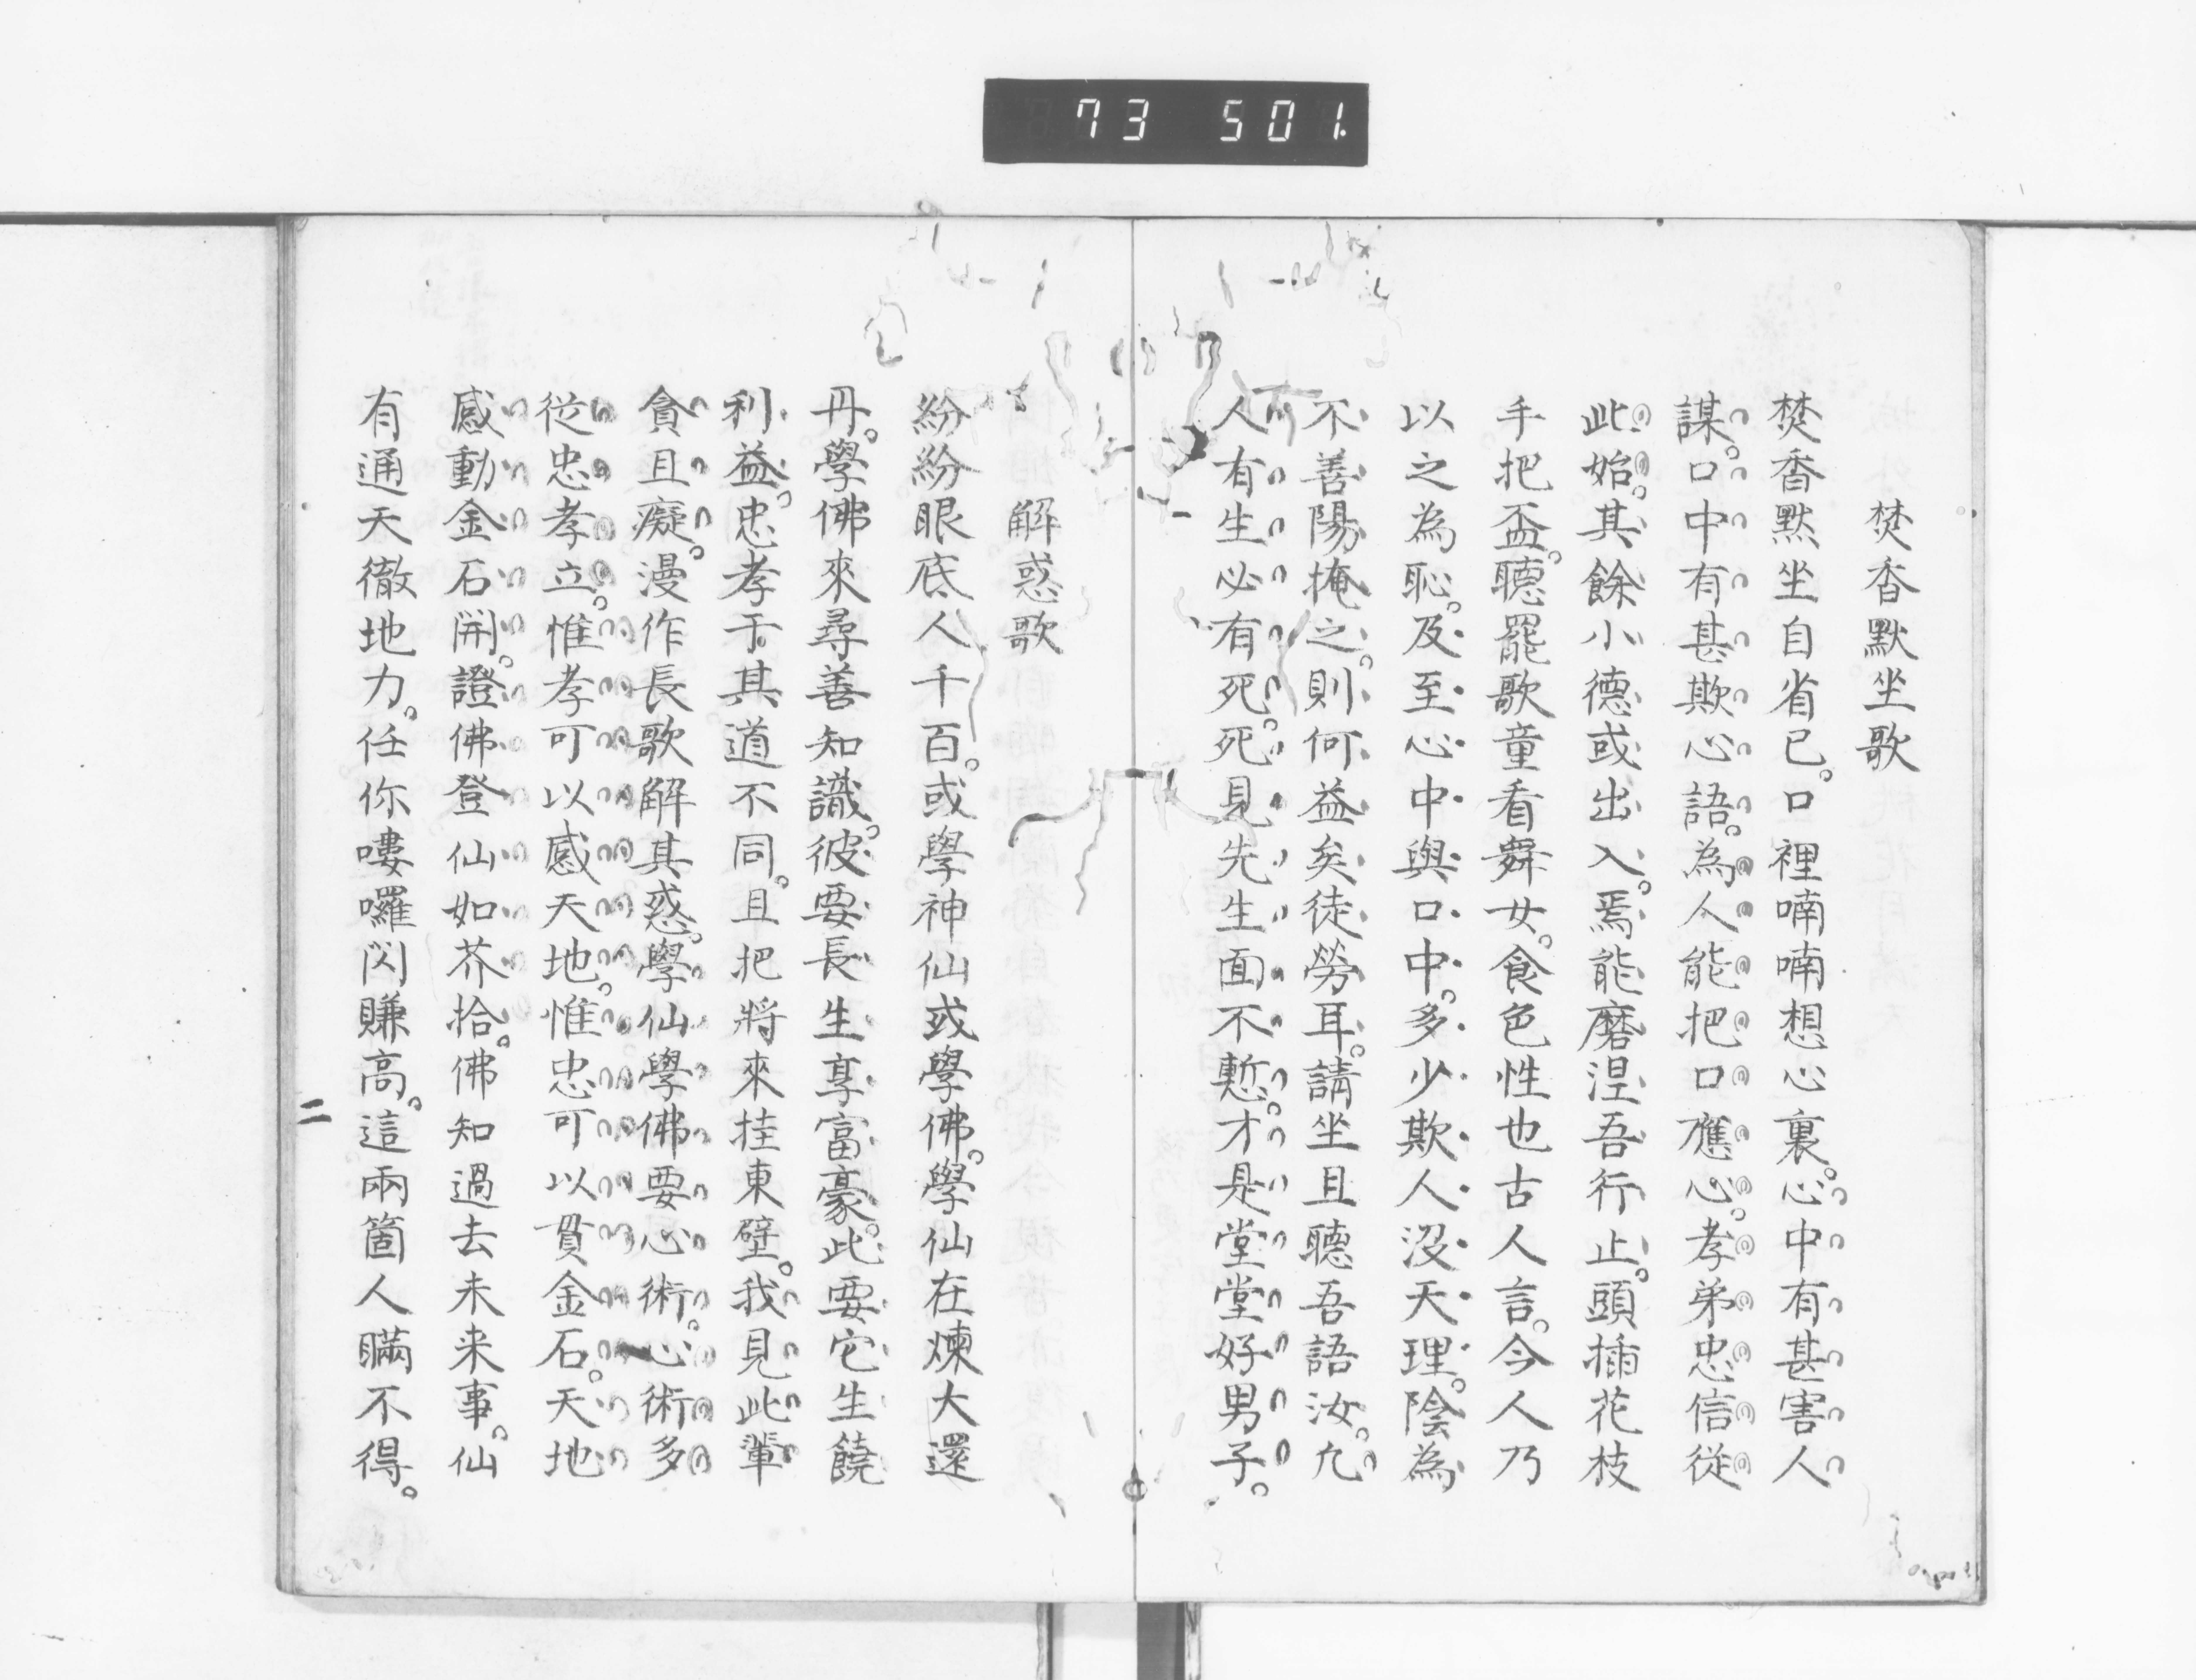 73 501.
焚香默坐歌
焚香默坐自省已。口裡喃喃想心裏。心中有甚害人
謀。口中有甚欺心語。為人能把口應心。孝弟忠信從
此始。其餘小德或出入。焉能磨涅吾行止。頭插花枝
手把盃。聽罷歌童看舞女。食色性也古人言。今人乃
以之為恥。及至心中與口中。多少欺人沒天理。陰為
不善陽掩之。則何益矣徒勞耳。請坐且聽吾語汝。凢
人有生必有死。死見先生面不慙。才是堂堂好男子。
解惑歌
紛紛眼底人千百。或學神仙或學佛。學仙在煉大還
丹。學佛來尋善知識。彼要長生享富豪。此要它生饒
利益。忠孝于其道不同。且把將來挂東壁。我見此輩
貪且癡。漫作長歌解其惑。學仙學佛要心術。心術多
從忠孝立。惟孝可以感天地。惟忠可以貫金石。天地
感動金石開。證佛登仙如芥拾。佛知過去未来事。仙
有通天徹地力。任你嘍囉閃賺高。這兩箇人瞞不得。
二